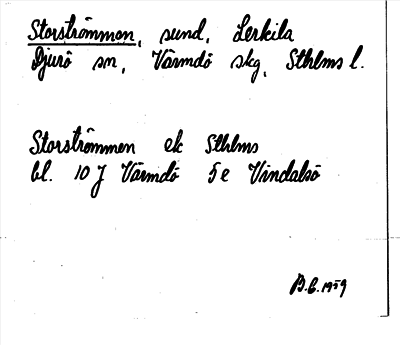 Storströmmen, sund, Lerkila
Djurö sn, Värmdö skg, Sthlms l.
Storströmmen ek Sthlms
bl. 10 J Värmdö 5e Vindalsö
B.C. 1959